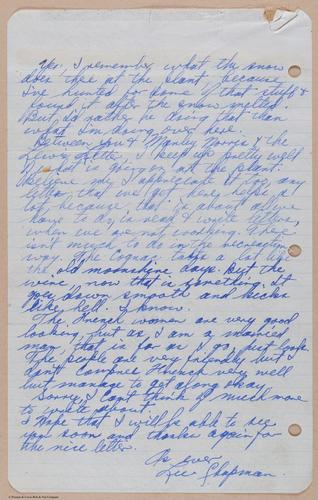 Yes, I remember what the snow
does there at the plant because
I've hunted for some of that stuff &
found it after the snow melted.
But I'd rather be doing that than
what I'm doing over here.
Between you & Manley Morris & the
News Letter, I keep up pretty well
on what is going on at the plant.
Believe me, I appreciate it for, any
letter that one gets here helps a
lot because that is about all we
have to do, is read & write letters,
when we are not working. There
isn't much to do in the recreation
way. The Cognac takes a lot like
the old moonshine days. But the
wine, now that is something. It
goes down smooth and kicks
like hell. I know.
The French women are very good
looking but as I am a married
man that is far as I go, just look.
The people are very friendly but I
don't French very well
but manage to get along okay.
Sorry I can't think of much more
to write about.
I hope that I will be able to see
you soon and thanks again for
the nice letter.
As ever
Lee Chapman.